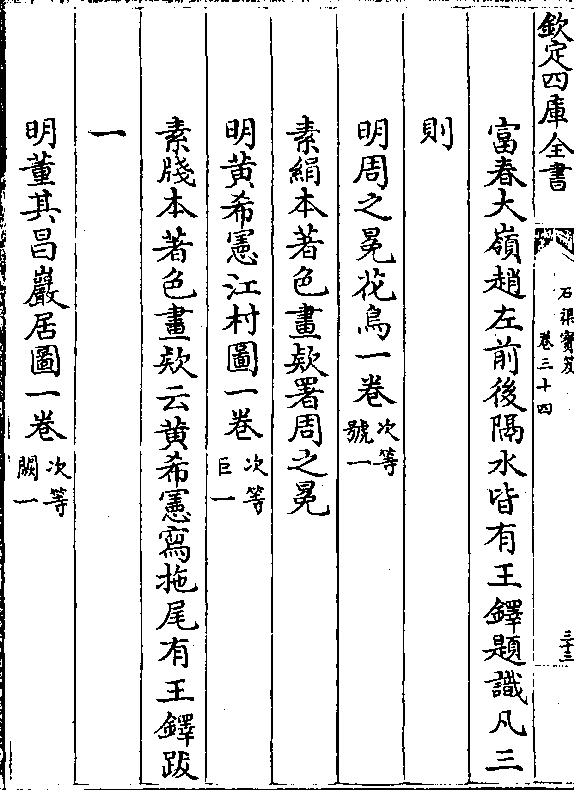 欽定四庫全書
石渠寳笈
卷三十四
三十三
富春大嶺趙左前後隔水皆有王鐸題識凡三
則
明周之冕花鳥一卷次等號一
素絹本著色畫欵署周之冕
明黄希憲江村圖一卷次等巨一
素牋本著色畫欵云黄希憲寫拖尾有王鐸跋
一
明董其昌巖居圖一卷次等闕一